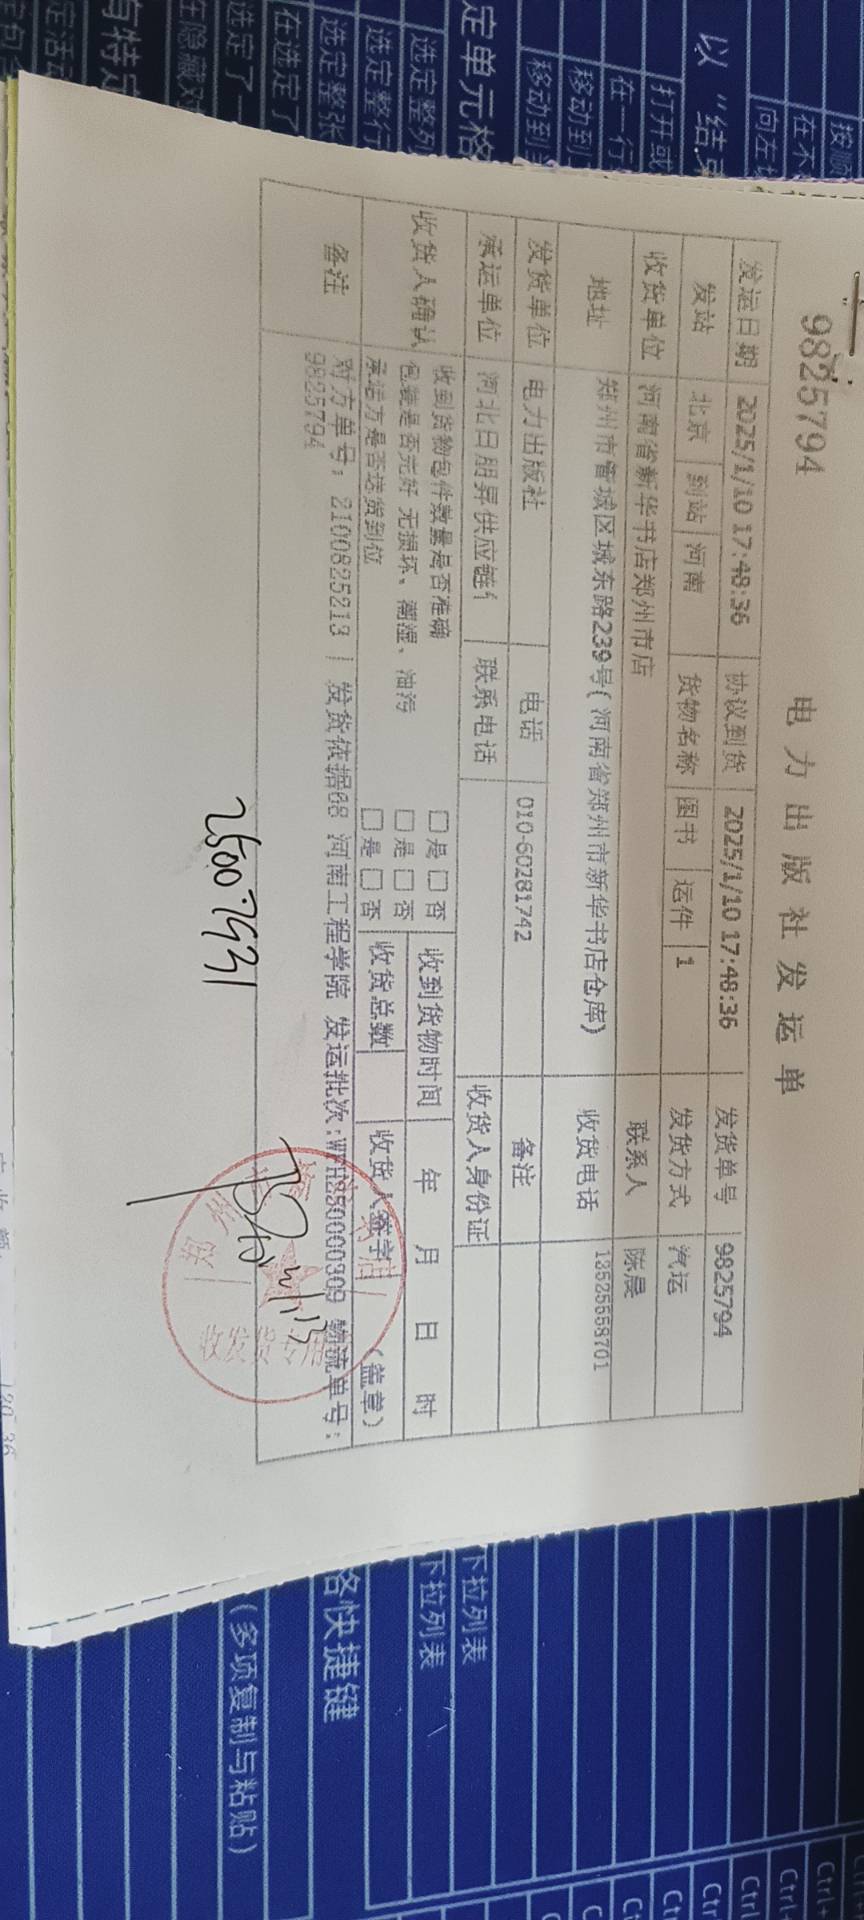 9825794
电力出版社发运单
发运日期 2025/1/10 17:48:36 协议到货 2025/1/10 17:48:36 发货单号 9825794
发站 北京 到站 河南 货物名称 图书 运件 1 发货方式 汽运
收货单位 河南省新华书店郑州市店 联系人 陈晨
地址 郑州市管城区城东路239号(河南省郑州市新华书店仓库) 收货电话 13525558701
发货单位 电力出版社 电话 010-60281742 备注
承运单位 河北日朋昇供应链 联系电话 收货人身份证
收货人确认 收到货物包件数量是否准确 □是□否 收到货物时间 年 月 日 时
包装是否完好 无损坏、潮湿、油污 □是□否
承运方是否送货到位 □是□否 收货总数 收货人签字 (盖章)
备注 对方单号:2100825213 | 发货依据68 河南工程学院 发运批次:WYH250000309 物流单号:
9825794
收发货专用
定单元格
选定整列
选定整行
选定整张
在选定了
选定了一
在隐藏对
有特定
定活动
以“结束
打开或
在一行
移动到
移动到
按顺
在不
向左
下拉列表
下拉列表
格快捷键
(多项复制与粘贴)
Ctrl+
Ctrl+
Ctrl+
Ctrl
Ctrl
Ct
Ct
C